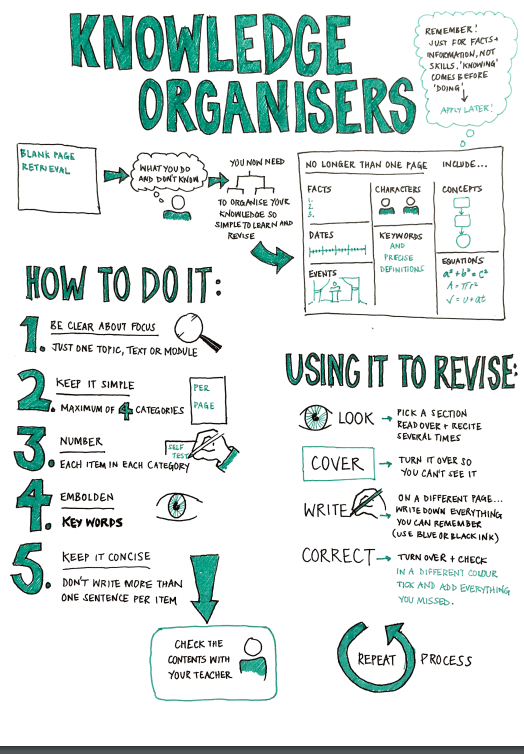 KNOWLEDGE
ORGANISERS
REMEMBER!
JUST FOR FACTS+
INFORMATION, NOT
SKILLS. 'KNOWING'
COMES BEFORE
'DOING'
APPLY LATER!
BLANK PAGE
RETRIEVAL
WHAT YOU DO
AND DON'T KNOW
YOU NOW NEED
TO ORGANISE YOUR
KNOWLEDGE SO
SIMPLE TO LEARN AND
REVISE
NO LONGER THAN ONE PAGE INCLUDE...
FACTS
1.
2.
3.
CHARACTERS
CONCEPTS
DATES
KEYWORDS
AND
PRECISE
DEFINITIONS
EVENTS
EQUATIONS
a² + b² = c²
A = πr²
V = u + at
HOW TO DO IT:
1. BE CLEAR ABOUT FOCUS
JUST ONE TOPIC, TEXT OR MODULE
2. KEEP IT SIMPLE
MAXIMUM OF 4 CATEGORIES
PER
PAGE
3. NUMBER
EACH ITEM IN EACH CATEGORY
SELF
TEST
4. EMBOLDEN
KEY WORDS
5. KEEP IT CONCISE
DON'T WRITE MORE THAN
ONE SENTENCE PER ITEM
CHECK THE
CONTENTS WITH
YOUR TEACHER
USING IT TO REVISE:
LOOK → PICK A SECTION
READ OVER + RECITE
SEVERAL TIMES
COVER → TURN IT OVER SO
YOU CAN'T SEE IT
WRITE → ON A DIFFERENT PAGE...
WRITE DOWN EVERYTHING
YOU CAN REMEMBER
(USE BLUE OR BLACK INK)
CORRECT → TURN OVER + CHECK
IN A DIFFERENT COLOUR
TICK AND ADD EVERYTHING
YOU MISSED.
REPEAT PROCESS